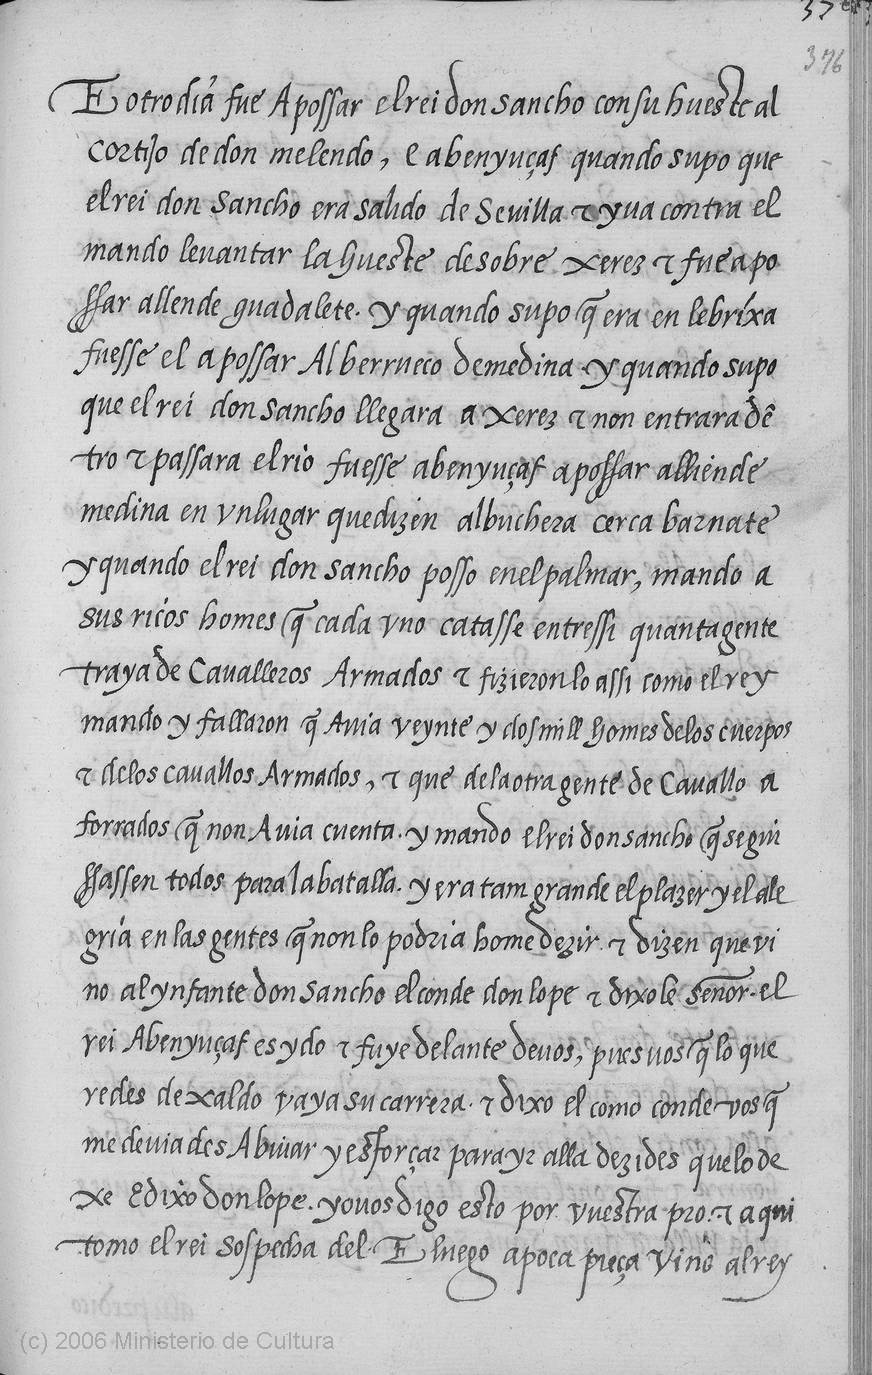 37
376
E otro dia fue A possar el rei don sancho con su hueste al
cortijo de don melendo, e abenyuçaf quando supo que
el rei don Sancho era salido de Sevilla τ yua contra el
mando leuantar la hueste de sobre xerez τ fue a po
ssar allende guadalete. y quando supo q̃ era en lebrixa
fuesse el a possar Al berrueco de medina y quando supo
que el rei don sancho llegara a xerez τ non entrara dẽ
tro τ passara el rio fuesse abenyuçaf a possar alliende
medina en vn lugar que dizen albuhera cerca barnate
y quando el rei don sancho posso en el palmar, mando a
sus ricos homes q̃ cada vno catasse entressi quanta gente
traya de Cavalleros Armados τ fizieron lo assi como el rey
mando y fallaron q̃ Auia veynte y dos mill homes de los cuerpos
τ de los cauallos Armados, τ que de la otra gente de Cauallo a
forrados q̃ non Auia cuenta. y mando el rei don sancho q̃ se gui
ssassen todos para la batalla. y era tam grande el plazer y el ale
gria en las gentes q̃ non lo podria home dezir. τ dizen que vi
no al ynfante don Sancho el conde don lope τ dixo le Señor. el
rei Abenyuçaf es ydo τ fuye delante de uos, pues uos q̃ lo que
redes dexaldo vaya su carrera. τ dixo el como conde vos q̃
me deuiades Abiuar y esforçar para yr alla dezides que lo de
xe E dixo don lope. yo uos digo esto por vuestra pro. τ aqui
tomo el rei sospecha del. E luego a poca pieça vino al rey
(c) 2006 Ministerio de Cultura